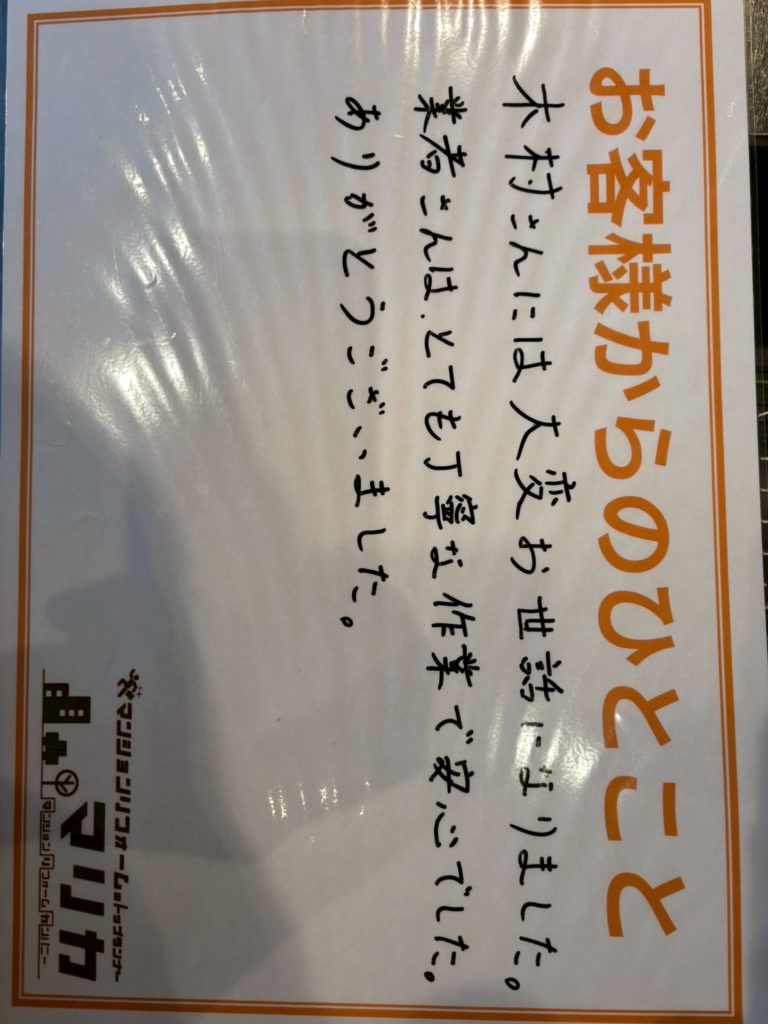 お客様からのひとこと
木村さんには大変お世話になりました。
業者さんは、とても丁寧な作業で安心でした。
ありがとうございました。
マンションリフォームのトップランナー
マリカ
マンションリフォームカンパニー